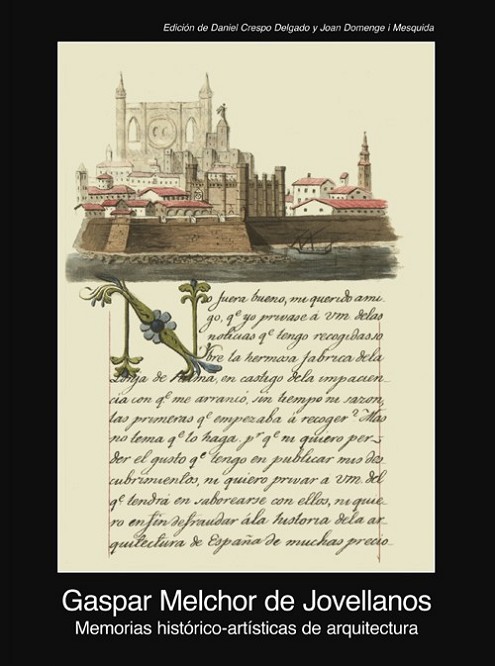 Edición de Daniel Crespo Delgado y Joan Domenge i Mesquida
No fuera bueno, mi querido ami-
go, qᵉ yo privase á vm. delas
noticias qᵉ tengo recogidas so
bre la hermosa fabrica dela
Lonja de Palma, en castigo dela impacien-
cia con qᵉ me arrancó, sin tiempo ni sazon,
las primeras qᵉ empezaba á recoger? Mas
no tema qᵉ lo haga, pʳ qᵉ ni quiero per-
der el gusto qᵉ tengo en publicar mis des
cubrimientos, ni quiero privar a vm. del
qᵉ tendrá en saborearse con ellos, ni quie-
ro en fin defraudar ála historia dela ar
quitectura de España de muchas precio
Gaspar Melchor de Jovellanos
Memorias histórico-artísticas de arquitectura